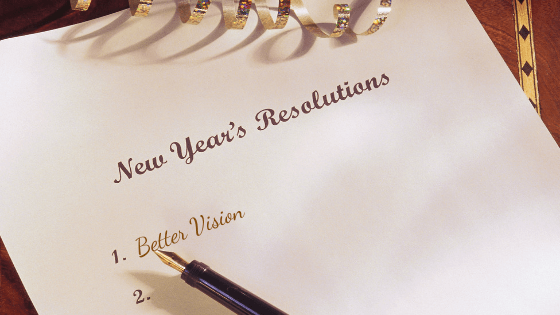 New Year's Resolutions
1. Better Vision
2.